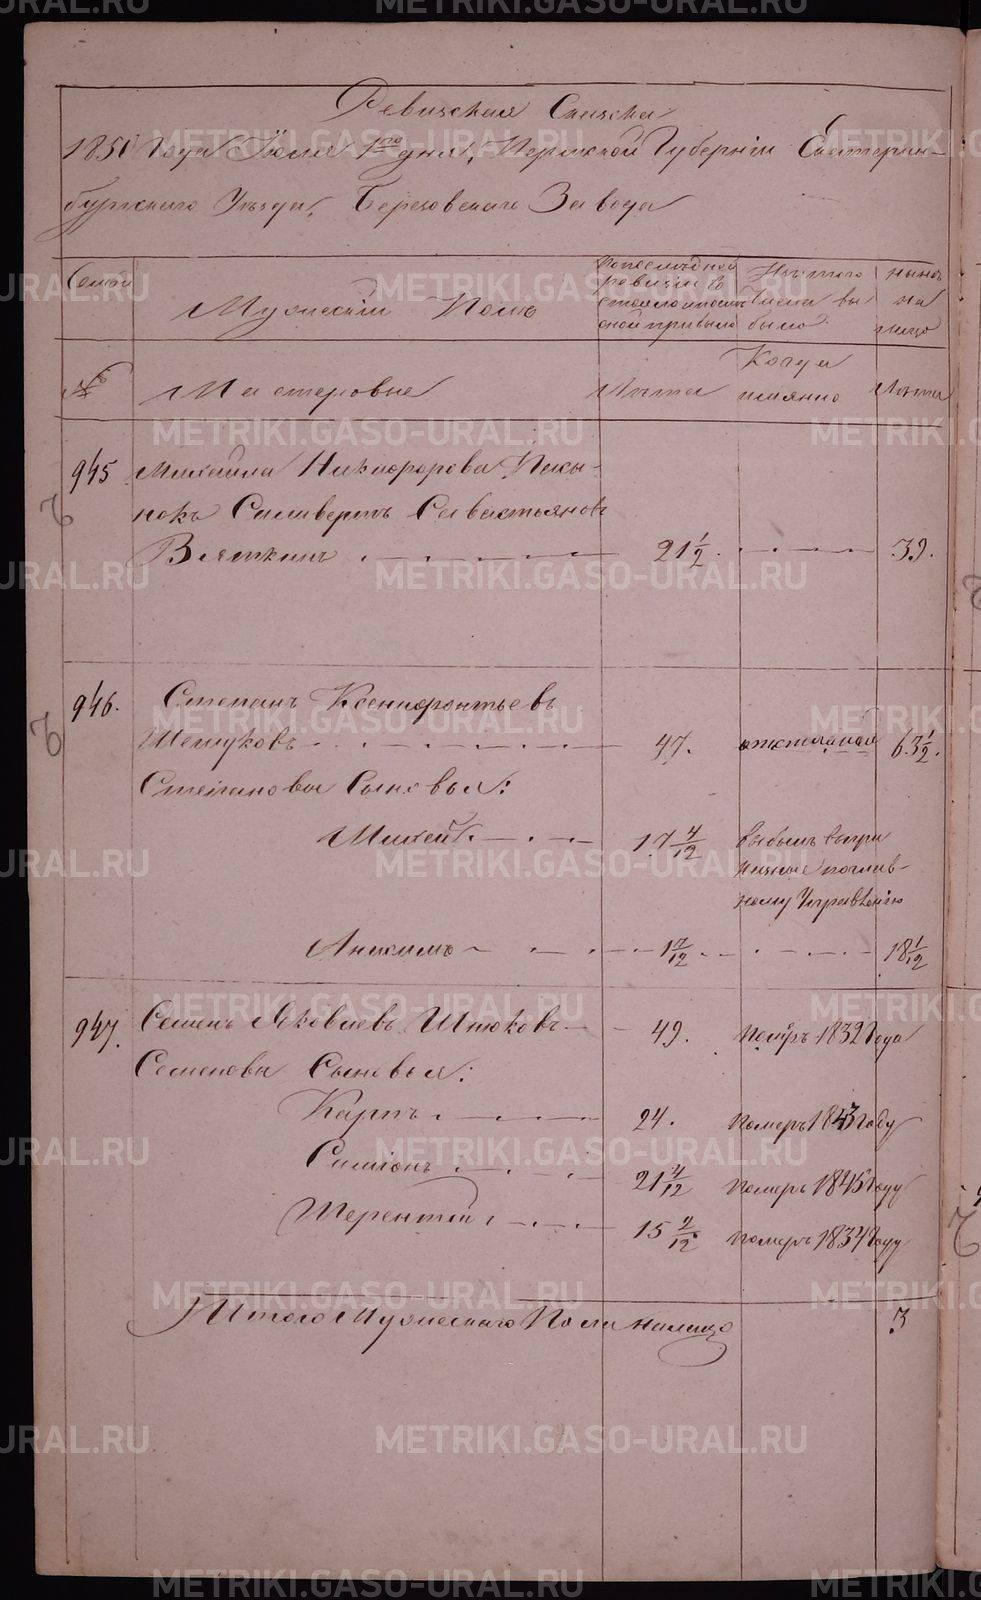 Ревизская Сказка
1850 года Июля 1го дня, Пермской Губернiи Екатерин-
бургскаго Уезда, Березовскаго Завода
Семьи
Мужескiй Полъ
По последней
ревизiи
состояло и после
оной прибыло
Изъ того
числа вы
было
ныне
на
лицо
№
Мастеровые
Лета
Когда
имянно
Лета
945
Михайла Никифорова
Селиверстъ Савастьяновъ
Вяткинъ
21 1/2
39.
946.
Степанъ Ксенофонтьевъ
Шелуковъ
47.
отставной
63 1/2.
Степановы Сыновья:
Михей
17 4/12
Выбылъ
по глав-
ному Управленiю
Анисимъ
1 7/12
18 1/12
947.
Семенъ Яковлевъ Шлюковъ
49.
Померъ 1832 года
Семенова Сыновья:
Карпъ
24.
Померъ 1843 году
Симiонъ
21 4/12
Померъ 1845 году
Терентiй
15 2/12
Померъ 1834 году
Итого Мужескаго Пола налицо
3
METRIKI.GASO-URAL.RU